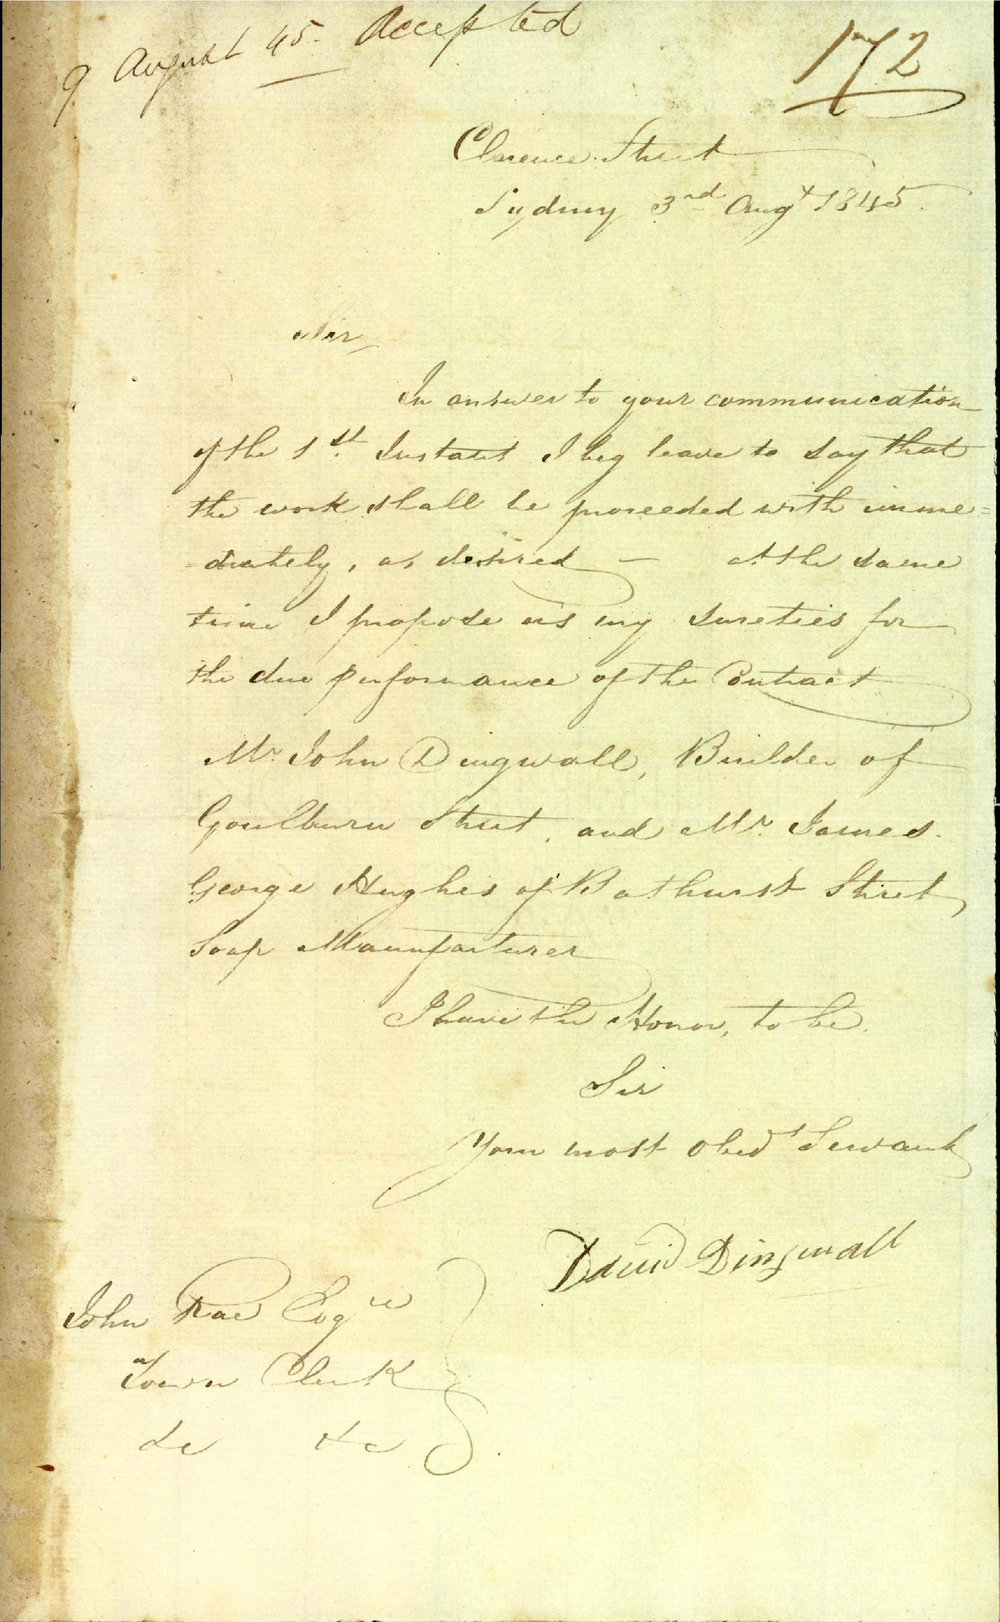 9 August 45. Accepted
172
Clarence Street
Sydney 3rd Augt 1845.
Sir,
In answer to your communication
of the 1st. Instant I beg leave to say that
the work shall be proceeded with imme=
=diately, as desired — At the same
time I propose as my sureties for
the due performance of the Contract
Mr. John Dingwall, Builder of
Goulburn Street, and Mr. James
George Hughes of Bathurst Street,
Soap Manufacturer
I have the Honor, to be.
Sir
Your most Obedt Servant
David Dingwall
John Rae Esqre
Town Clerk
&c &c